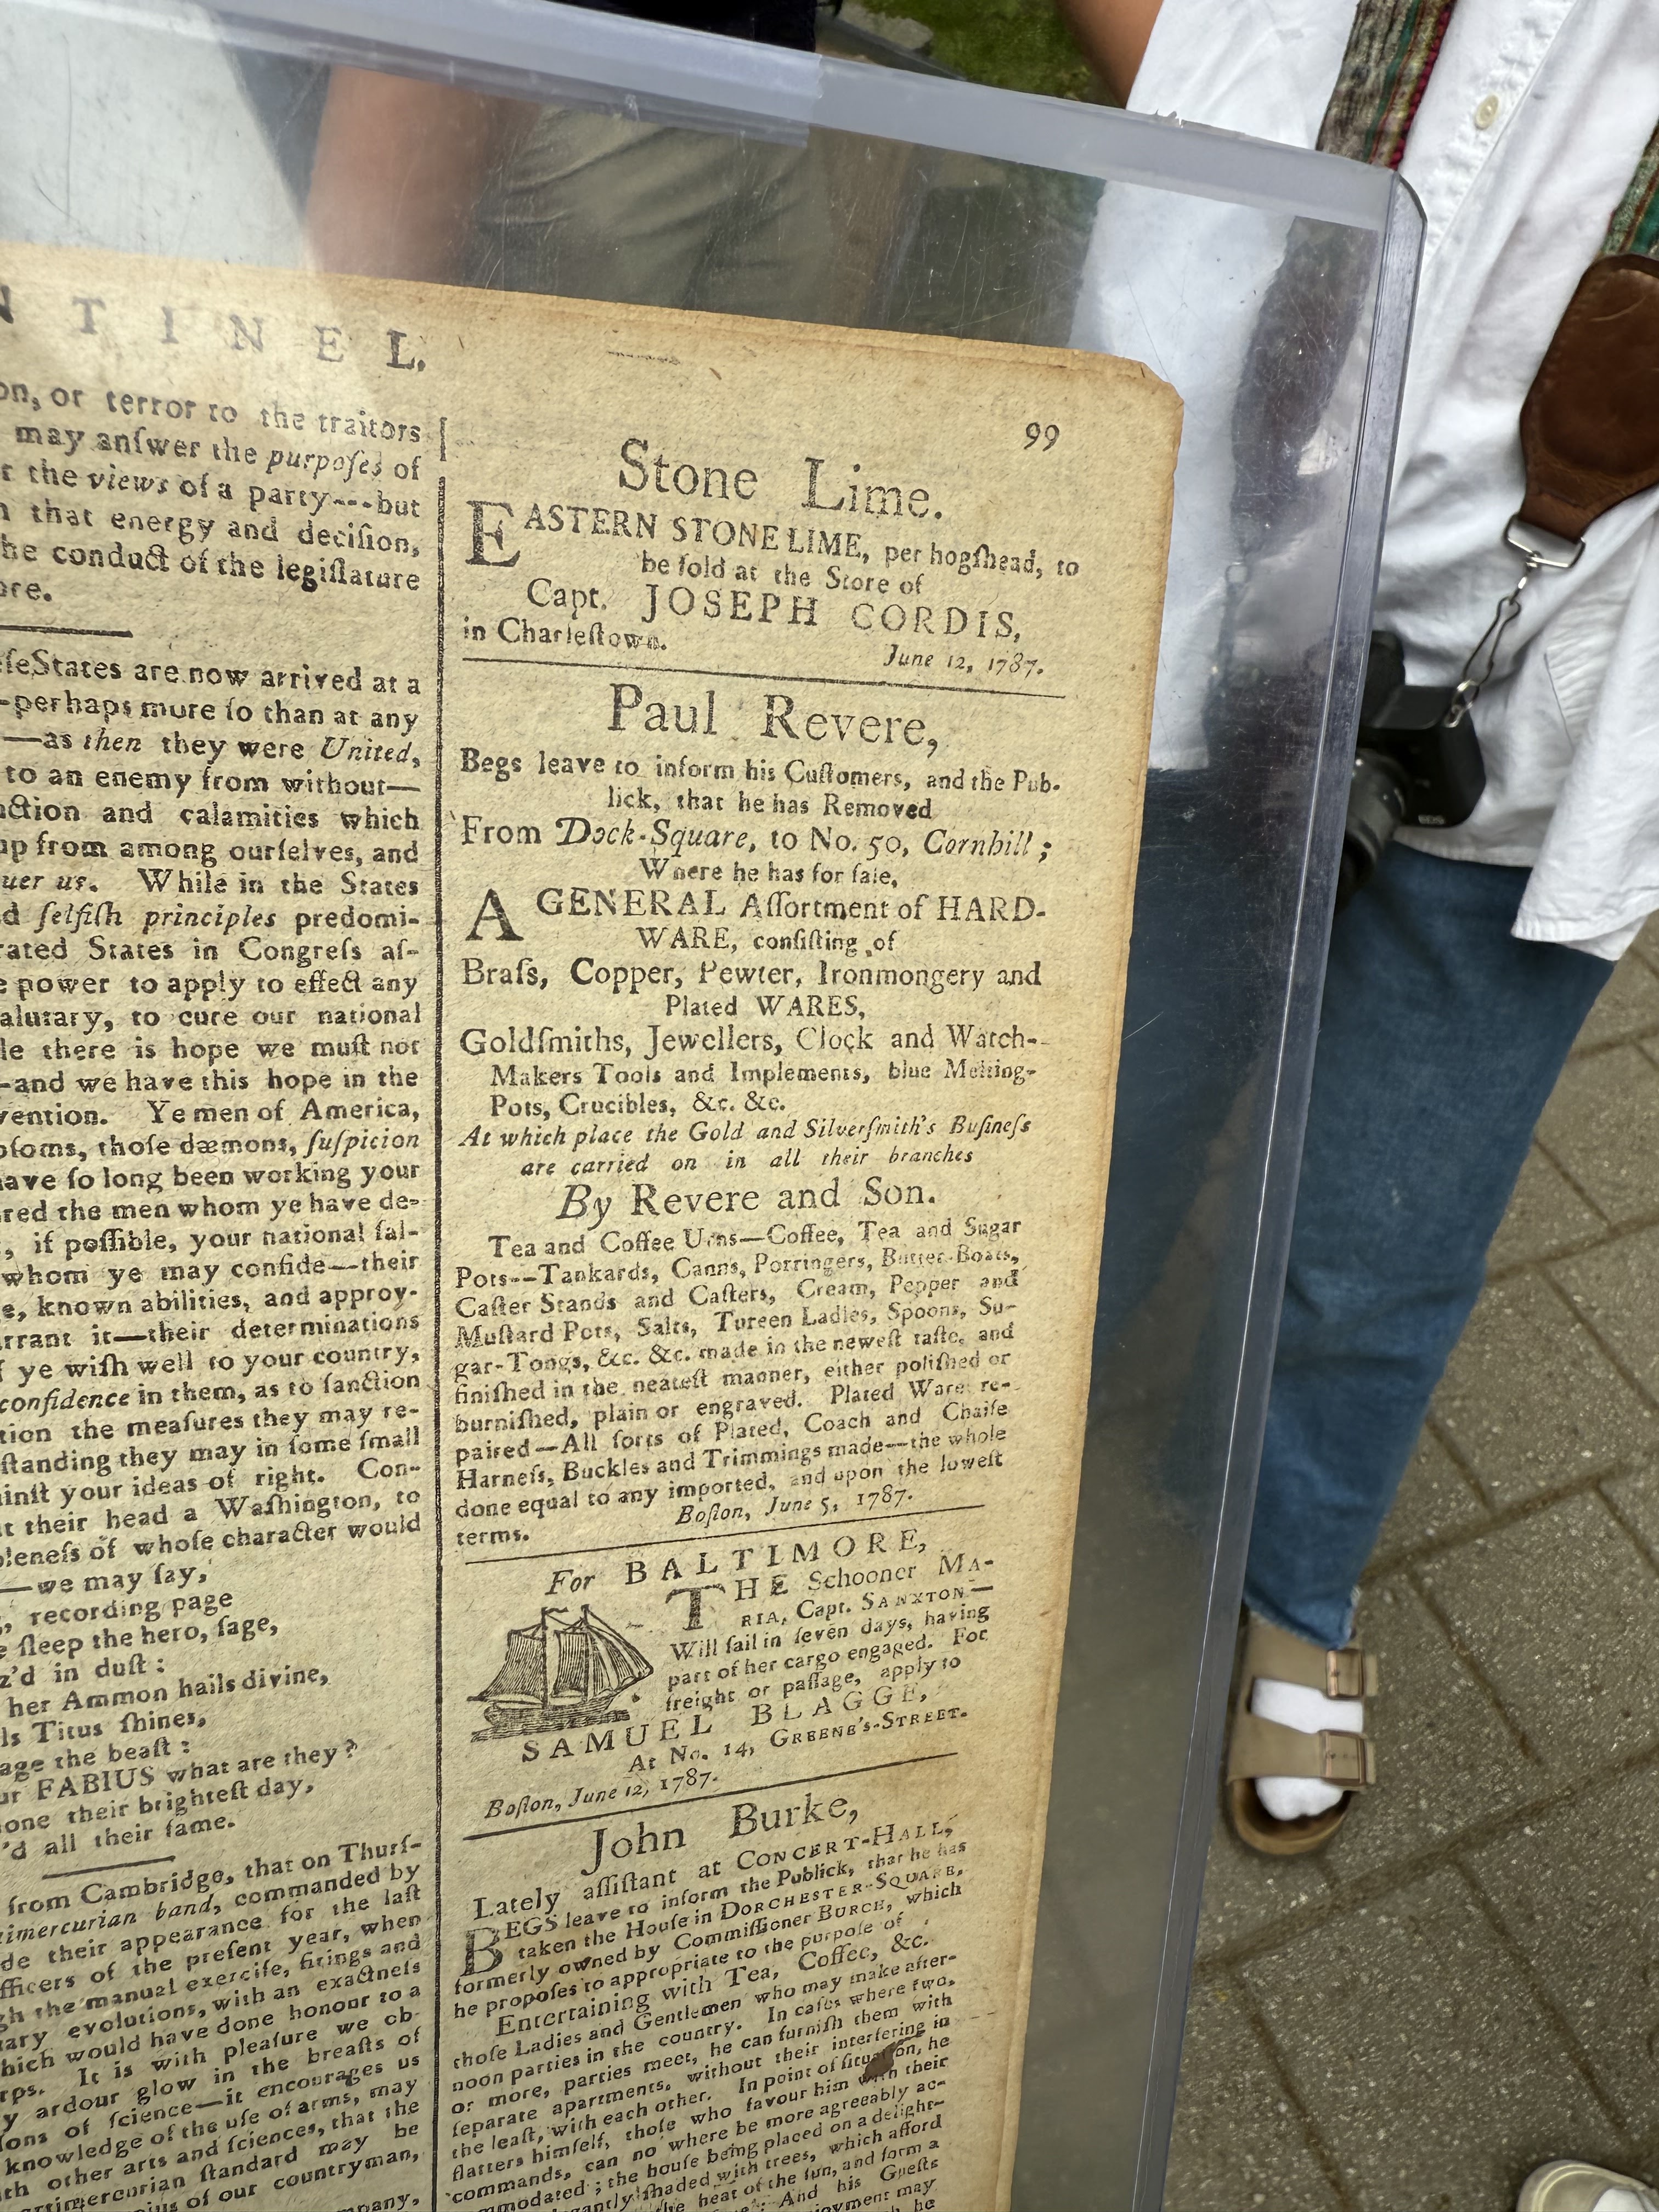 N T I N E L.
99
on, or terror to the traitors
may anſwer the purpoſes of
the views of a party---but
that energy and deciſion,
he conduct of the legiſlature
ore.
eſeStates are now arrived at a
-perhaps more ſo than at any
—as then they were United,
to an enemy from without—
ction and calamities which
up from among ourſelves, and
uer us. While in the States
d ſelfiſh principles predomi-
rated States in Congreſs aſ-
e power to apply to effect any
alutary, to cure our national
le there is hope we muſt not
-and we have this hope in the
vention. Ye men of America,
oſoms, thoſe dæmons, ſuſpicion
ave ſo long been working your
red the men whom ye have de-
, if poſſible, your national ſal-
whom ye may confide—their
e, known abilities, and approv-
arrant it—their determinations
f ye wiſh well to your country,
confidence in them, as to ſanction
tion the meaſures they may re-
ſtanding they may in ſome ſmall
inſt your ideas of right. Con-
t their head a Waſhington, to
pleneſs of whoſe character would
—we may ſay,
, recording page
e ſleep the hero, ſage,
z'd in duſt :
her Ammon hails divine,
ls Titus ſhines,
age the beaſt :
ur FABIUS what are they ?
one their brighteſt day,
'd all their fame.
from Cambridge, that on Thurſ-
imercurian band, commanded by
de their appearance for the laſt
fficers of the preſent year, when
gh the manual exerciſe, firings and
ary evolutions, with an exactneſs
hich would have done honour to a
rps. It is with pleaſure we ob-
y ardour glow in the breaſts of
ons of ſcience—it encourages us
knowledge of the uſe of arms, may
th other arts and ſciences, that the
artimercurian ſtandard may be
nius of our countryman,
mpany,
Stone Lime.
EASTERN STONE LIME, per hogſhead, to
be ſold at the Store of
Capt. JOSEPH CORDIS,
in Charleſtown.
June 12, 1787.
Paul Revere,
Begs leave to inform his Cuſtomers, and the Pub-
lick, that he has Removed
From Dock-Square, to No. 50, Cornhill ;
Where he has for ſale,
A GENERAL Aſſortment of HARD-
WARE, conſiſting of
Braſs, Copper, Pewter, Ironmongery and
Plated WARES,
Goldſmiths, Jewellers, Clock and Watch-
Makers Tools and Implements, blue Melting-
Pots, Crucibles, &c. &c.
At which place the Gold and Silverſmith's Buſineſs
are carried on in all their branches
By Revere and Son.
Tea and Coffee Urns—Coffee, Tea and Sugar
Pots--Tankards, Canns, Porringers, Butter-Boats,
Caſter Stands and Caſters, Cream, Pepper and
Muſtard Pots, Salts, Tureen Ladles, Spoons, Su-
gar-Tongs, &c. &c. made in the neweſt taſte, and
finiſhed in the neateſt manner, either poliſhed or
burniſhed, plain or engraved. Plated Ware re-
paired—All ſorts of Plated, Coach and Chaiſe
Harneſs, Buckles and Trimmings made—the whole
done equal to any imported, and upon the loweſt
terms.
Boſton, June 5, 1787.
For BALTIMORE,
THE Schooner MA-
RIA, Capt. SANXTON—
Will ſail in ſeven days, having
part of her cargo engaged. For
freight or paſſage, apply to
SAMUEL BLAGGE,
At No. 14, GREENE'S-STREET.
Boſton, June 12, 1787.
John Burke,
Lately aſſiſtant at CONCERT-HALL,
BEGS leave to inform the Publick, that he has
taken the Houſe in DORCHESTER-SQUARE,
formerly owned by Commiſſioner BURCH, which
he propoſes to appropriate to the purpoſe of
Entertaining with Tea, Coffee, &c.
thoſe Ladies and Gentlemen who may make after-
noon parties in the country. In caſes where two,
or more, parties meet, he can furniſh them with
ſeparate apartments, without their interfering in
the leaſt, with each other. In point of ſituation, he
flatters himſelf, thoſe who favour him with their
commands, can no where be more agreeably ac-
mmodated ; the houſe being placed on a delight-
gantly ſhaded with trees, which afford
he heat of the ſun, and form a
And his Gueſts
joyment may
he